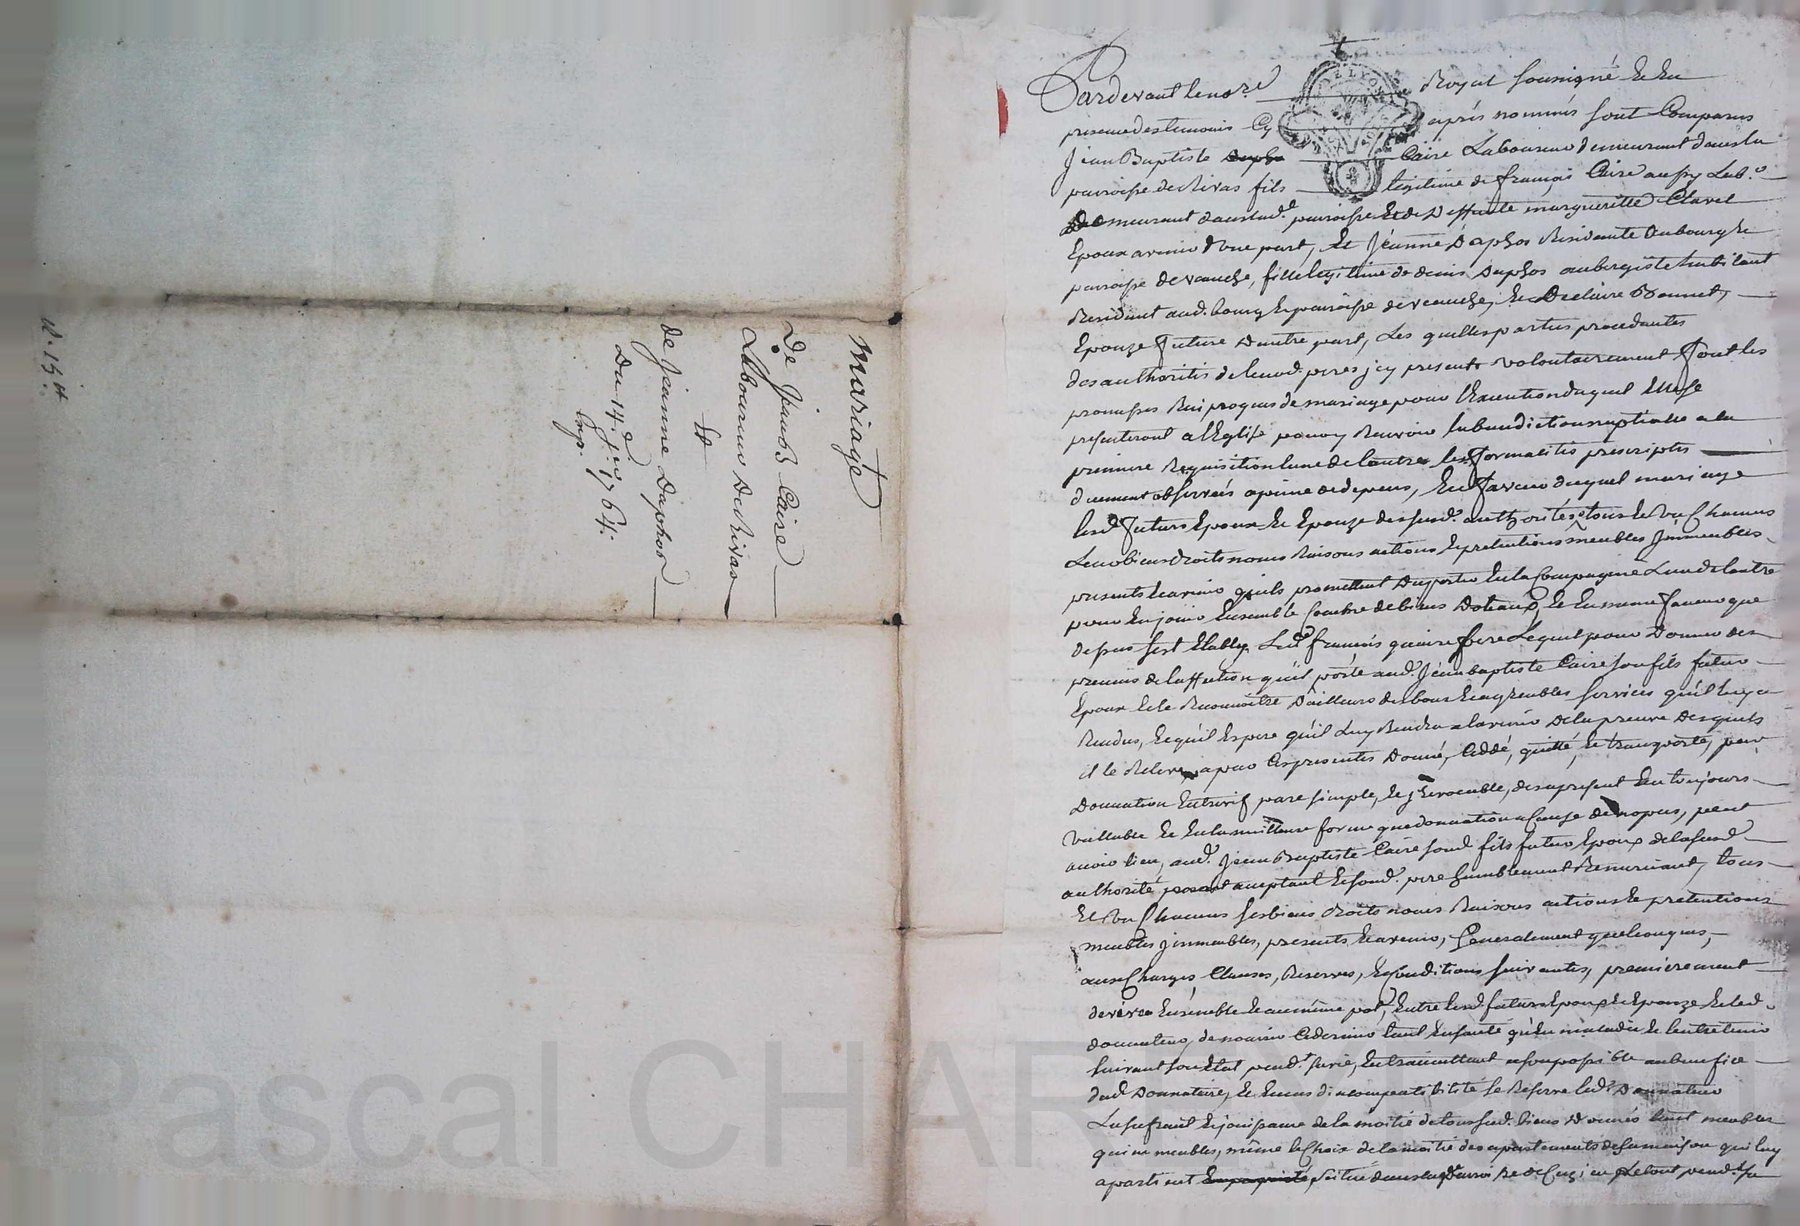 Mariage
De Jean B. Caire
Laboureur De Rivas
Et
de Jeanne Daphos
Du 14. 1764.
Pardevant le no.re Royal Soussigné Et En
presence des temoins Cy après nommés sont Comparus
Jean Baptiste Caire Laboureur demeurant dans la
paroisse de Rivas fils légitime de françois Caire aussy Lab.r
Demeurant dans lad.e paroisse Et de Deffunte margueritte Clavel
Epoux avenir d'une part, Et Jeanne Daphos Residante Aubourg &
paroisse de veauche, fille legitime de denis Daphos aubergiste habitant
Residant aud. bourg & paroisse de veauche, Et De claire Bonnet,
Epouze future Dautre part, Les quelles parties procedantes
des authorités de leursd. peres jcy presents volontairement font les
promesses Reciproques de mariage pour L'Execution duquel Elles se
presenteront a l'Eglise pour y Recevoir la benediction nuptialle a la
premiere Requisition lune de lautre les formalités prescriptes
duement observées apeine de depens, En faveur duquel mariage
lesd. futurs Epoux Et Epouze desusd. authorités tous Et Un Chacuns
Leurs biens droits noms Raisons actions & pretentions meubles Jmmeubles
presents & avenir qu'ils promettent D'apporter En la Compagnie L'un de lautre
pour En jouir Ensemble comme de biens Dotaux, Et En meme faveur que
dessus s'est Etably Led. françois Caire pere Lequel pour Donner des
preuves de laffection qu'il porte aud. Jean baptiste Caire son fils futur
Epoux Et le Reconnoitre D'ailleurs des bons & agreables services qu'il luy a
Rendus, & qu'il Espere qu'il Luy Rendra alavenir De la preuve Desquels
il le Releve, a par Ces presentes Donné, Ceddé, quitté, Et transporté, par
Donnation Entrevif pure simple, Et jrrevocable, des apresent En toujours
vallable Et En la meilleure forme que donnation a Cause de nopces, peut
avoir lieu, aud. Jean Baptiste Caire sond. fils futur Epoux de la susd.
authorité acceptant & sond. pere humblement Remerciant, tous
Et Un Chacuns ses biens droits noms Raisons actions & pretentions
meubles jmmeubles, presents & avenir, Generalement quelconques,
aux Charges, Clauses, Reserves, & Conditions suivantes, premierement
de vivre Ensemble & au même pot, Entre lesd. futurs Epoux & Epouze & led.
donnateur, de nourrir Ce dernier tant En santé qu'En maladie & lentretenir
suivant son Etat pend.t sa vie, En travaillant a son possible au benefice
dud. Donnataire, Et En cas dincompatibilité se Reserve led. Donnateur
Lusufruit & jouissance de la moitié de tous sesd. biens Donnés tant meubles
qu'immeubles, même le Choix de la moitié des apartements de sa maison qui luy
apartient Situé dans lad. paroisse de Cuzieu Le tout pend.t sa